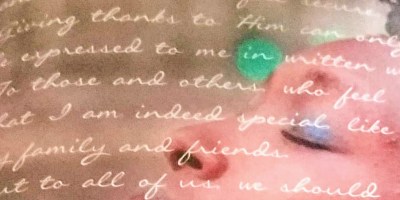 Giving thanks to Him can only
expressed to me in written
To those and others, who feel
that I am indeed special, like
family and friends.
to all of us. we should